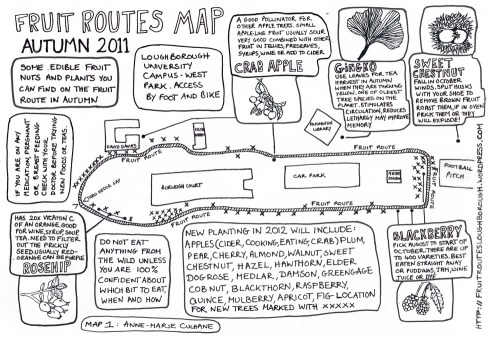 FRUIT ROUTES MAP
AUTUMN 2011
SOME EDIBLE FRUIT
NUTS AND PLANTS YOU
CAN FIND ON THE FRUIT
ROUTE IN AUTUMN
LOUGHBOROUGH
UNIVERSITY
CAMPUS-WEST
PARK. ACCESS
BY FOOT AND BIKE
A GOOD POLLINATOR FOR
OTHER APPLE TREES. SMALL
APPLE-LIKE FRUIT USUALLY SOUR
VERY GOOD COMBINED WITH OTHER
FRUIT IN JELLIES, PRESERVES,
SYRUPS, WINE OR ADD TO CIDER.
CRAB APPLE
GINGKO
USE LEAVES FOR TEA
HARVEST IN AUTUMN
WHEN THEY ARE TURNING
YELLOW. ONE OF OLDEST
TREE SPECIES ON THE
PLANET. STIMULATES
CIRCULATION, REDUCES
LETHARGY MAY IMPROVE
MEMORY
SWEET
CHESTNUT
FALL IN OCTOBER
WINDS. SPLIT HUSKS
WITH YOUR SHOE TO
REMOVE BROWN FRUIT
ROAST THEM, IF IN OVEN
PRICK THEM OR THEY
WILL EXPLODE!
IF YOU ARE ON ANY
MEDICATION, PREGNANT
OR BREAST FEEDING
CHECK WITH YOUR
DOCTOR BEFORE TRYING
NEW FOODS OR TEAS.
DAVID DAVIES
LIBRARY
FRUIT ROUTE
FRUIT ROUTE
BURLEIGH COURT
CAR PARK
FOOTBALL
PITCH
FRUIT ROUTE
FRUIT ROUTE
HAS 20X VITAMIN C
OF AN ORANGE. GOOD
FOR WINE, SYRUP SOUP
TEA. NEED TO FILTER
OUT THE PRICKLY
SEED USUALLY RED-
ORANGE CAN BE PURPLE
ROSEHIP
DO NOT EAT
ANYTHING FROM
THE WILD UNLESS
YOU ARE 100%
CONFIDENT ABOUT
WHICH BIT TO EAT,
WHEN AND HOW
NEW PLANTING IN 2012 WILL INCLUDE:
APPLES (CIDER, COOKING, EATING, CRAB) PLUM,
PEAR, CHERRY, ALMOND, WALNUT, SWEET
CHESTNUT, HAZEL, HAWTHORN, ELDER
DOG ROSE, MEDLAR, DAMSON, GREENGAGE
COB NUT, BLACKTHORN, RASPBERRY,
QUINCE, MULBERRY, APRICOT, FIG-LOCATION
FOR NEW TREES MARKED WITH XXXXX
BLACKBERRY
PICK AUGUST TO START OF
OCTOBER. THERE ARE UP
TO 400 VARIETIES. BEST
EATEN STRAIGHT AWAY
OR PUDDINGS, JAM, WINE
JUICE OR DYE
MAP 1: ANNE-MARIE CULHANE
HTTP://FRUITROUTESLOUGHBOROUGH.WORDPRESS.COM